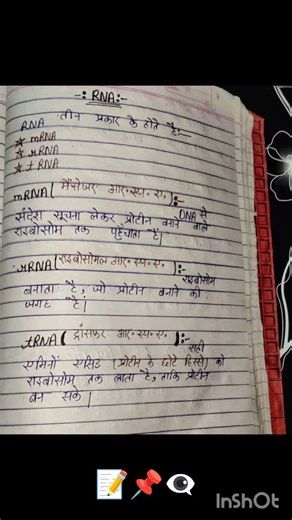 -: RNA:-
RNA तीन प्रकार के होते है:-
mRNA
rRNA
tRNA
mRNA (मैसेंजर आर.एन.ए.):-
संदेश सूचना लेकर प्रोटीन बनाने वाले DNA से
राइबोसोम तक पहुंचाता है।
rRNA (राइबोसोमल आर.एन.ए.):- राइबोसोम
बनाता है, जो प्रोटीन बनाने की
जगह है।
tRNA (ट्रांसफर आर.एन.ए.):- सही
एमिनो एसिड (प्रोटीन के छोटे हिस्से) को
राइबोसोम तक लाता है, ताकि प्रोटीन
बन सके।
InShOt